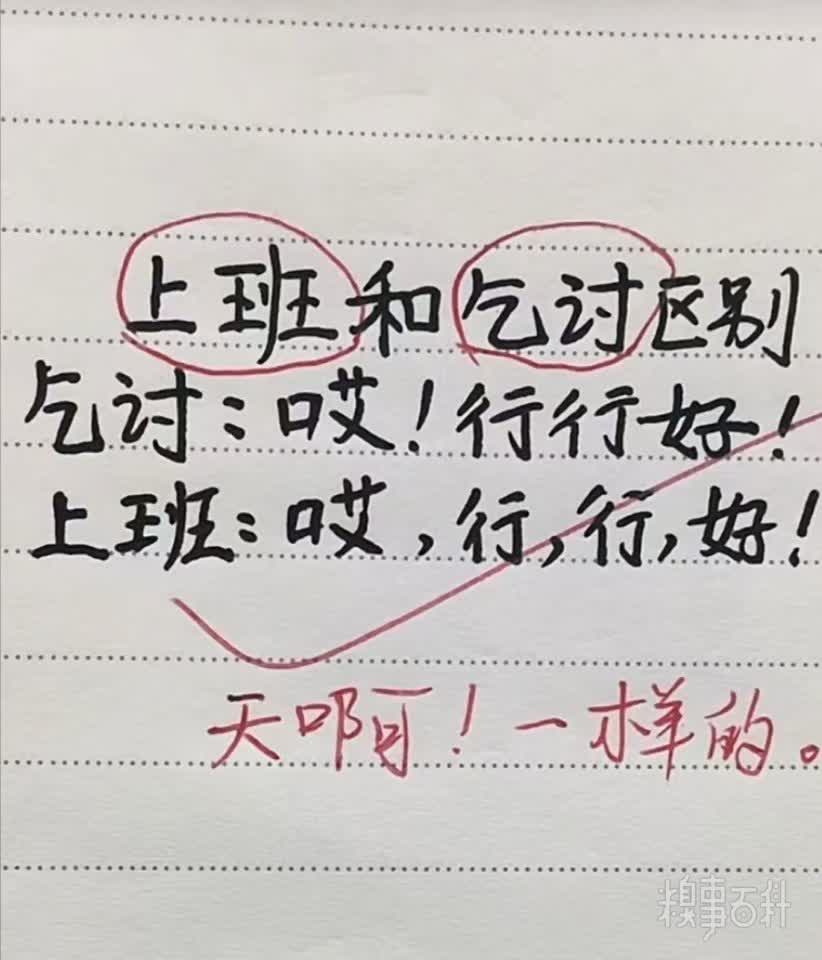 上班和乞讨区别
乞讨：哎！行行好！
上班：哎，行，行，好！
天啊！一样的。
糗事百科